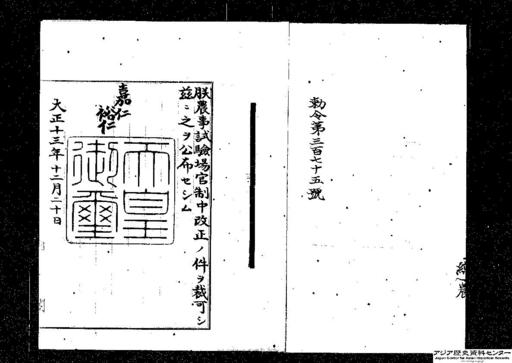 勅令第三百七十五號
朕農事試驗場官制中改正ノ件ヲ裁可シ
茲ニ之ヲ公布セシム
嘉仁
裕仁
天皇
御璽
大正十三年十二月二十日
アジア歴史資料センター
Japan Center for Asian Historical Records